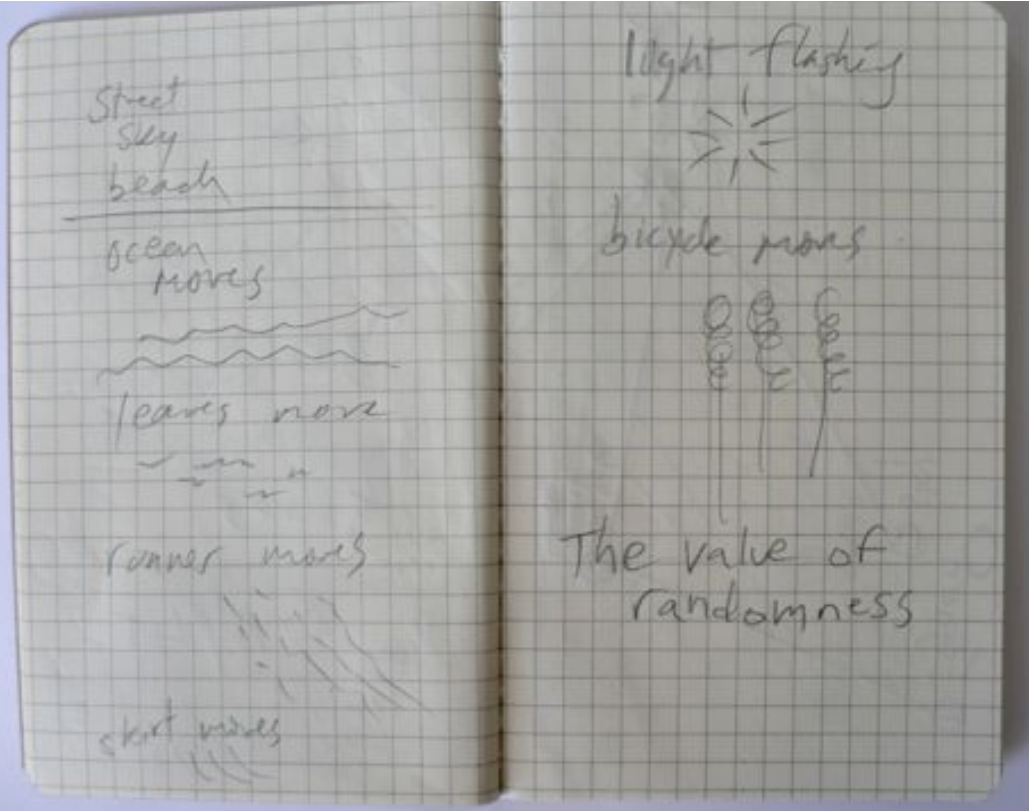 Street
sky
beach
ocean
moves
leaves move
runner moves
skirt moves
light flashing
bicycle moves
The value of
randomness